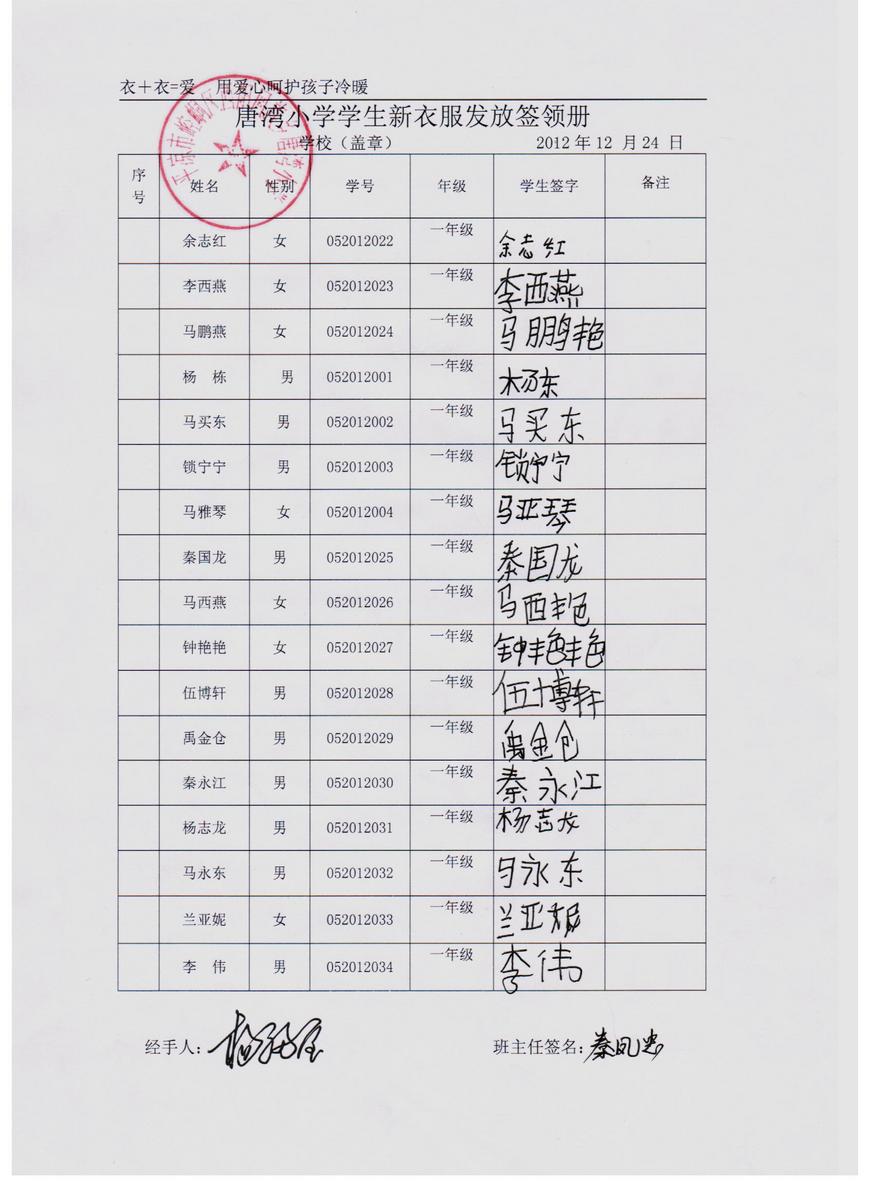 衣＋衣=爱 用爱心呵护孩子冷暖
唐湾小学学生新衣服发放签领册
学校（盖章） 2012 年 12 月 24 日
序号 姓名 性别 学号 年级 学生签字 备注
余志红 女 052012022 一年级 余志红
李西燕 女 052012023 一年级 李西燕
马鹏燕 女 052012024 一年级 马鹏艳
杨 栋 男 052012001 一年级 杨东
马买东 男 052012002 一年级 马买东
锁宁宁 男 052012003 一年级 锁宁宁
马雅琴 女 052012004 一年级 马亚琴
秦国龙 男 052012025 一年级 秦国龙
马西燕 女 052012026 一年级 马西艳
钟艳艳 女 052012027 一年级 钟艳艳
伍博轩 男 052012028 一年级 伍博轩
禹金仓 男 052012029 一年级 禹金仓
秦永江 男 052012030 一年级 秦永江
杨志龙 男 052012031 一年级 杨志龙
马永东 男 052012032 一年级 马永东
兰亚妮 女 052012033 一年级 兰亚妮
李 伟 男 052012034 一年级 李伟
经手人： 班主任签名：秦凤忠